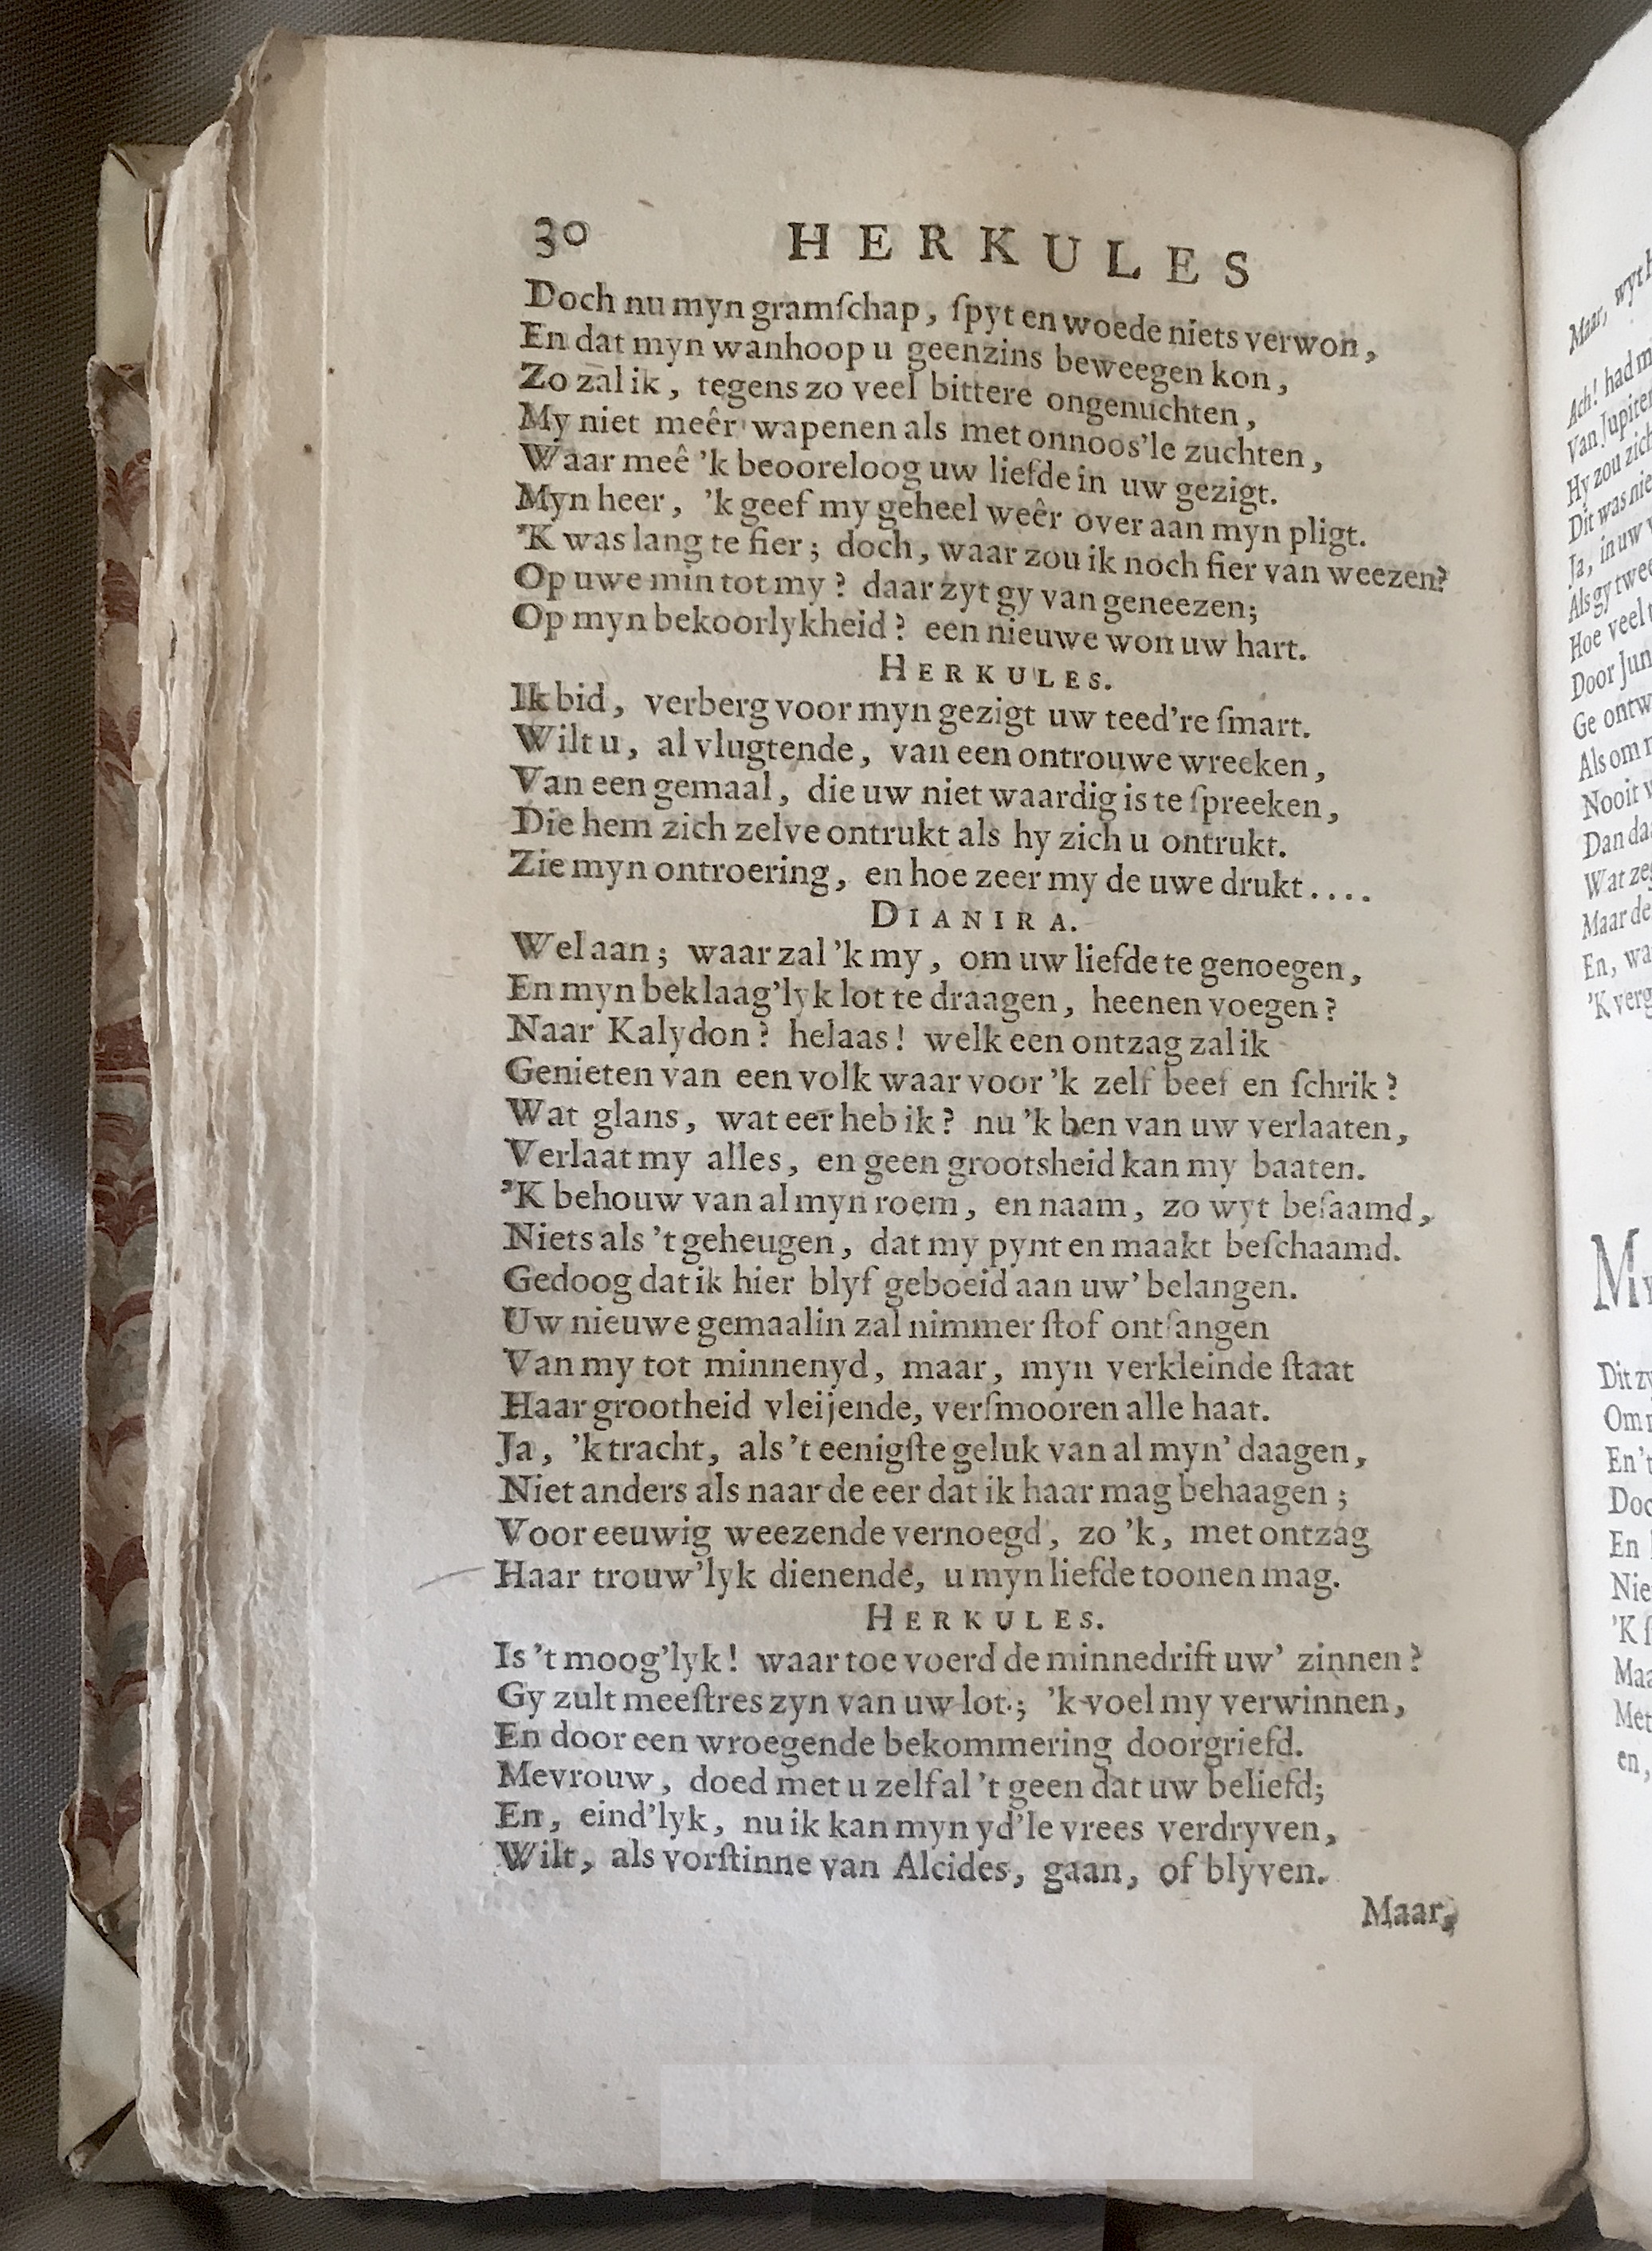 30 HERKULES
Doch nu myn gramſchap, ſpyt en woede niets verwon,
En dat myn wanhoop u geenzins beweegen kon,
Zo zal ik, tegens zo veel bittere ongenuchten,
My niet meêr wapenen als met onnoos'le zuchten,
Waar meê 'k beooreloog uw liefde in uw gezigt.
Myn heer, 'k geef my geheel weêr over aan myn pligt.
'K was lang te fier; doch, waar zou ik noch fier van weezen?
Op uwe min tot my? daar zyt gy van geneezen;
Op myn bekoorlykheid? een nieuwe won uw hart.
HERKULES.
Ik bid, verberg voor myn gezigt uw teed're ſmart.
Wilt u, al vlugtende, van een ontrouwe wreeken,
Van een gemaal, die uw niet waardig is te ſpreeken,
Die hem zich zelve ontrukt als hy zich u ontrukt.
Zie myn ontroering, en hoe zeer my de uwe drukt....
DIANIRA.
Wel aan; waar zal 'k my, om uw liefde te genoegen,
En myn beklaag'lyk lot te draagen, heenen voegen?
Naar Kalydon? helaas! welk een ontzag zal ik
Genieten van een volk waar voor 'k zelf beef en ſchrik?
Wat glans, wat eer heb ik? nu 'k ben van uw verlaaten,
Verlaat my alles, en geen grootsheid kan my baaten.
'K behouw van al myn roem, en naam, zo wyt befaamd,
Niets als 't geheugen, dat my pynt en maakt beſchaamd.
Gedoog dat ik hier blyf geboeid aan uw' belangen.
Uw nieuwe gemaalin zal nimmer ſtof ontfangen
Van my tot minnenyd, maar, myn verkleinde ſtaat
Haar grootheid vleijende, verſmooren alle haat.
Ja, 'k tracht, als 't eenigſte geluk van al myn' daagen,
Niet anders als naar de eer dat ik haar mag behaagen;
Voor eeuwig weezende vernoegd, zo 'k, met ontzag
Haar trouw'lyk dienende, u myn liefde toonen mag.
HERKULES.
Is 't moog'lyk! waar toe voerd de minnedrift uw' zinnen?
Gy zult meeſtres zyn van uw lot; 'k voel my verwinnen,
En door een wroegende bekommering doorgriefd.
Mevrouw, doed met u zelf al 't geen dat uw beliefd;
En, eind'lyk, nu ik kan myn yd'le vrees verdryven,
Wilt, als vorſtinne van Alcides, gaan, of blyven.
Maar,
Maar, wyt
Ach! had
Van Jupiter
Hy zou zich
Dit was
Ja, in uw
Als gy twee
Hoe veel
Door
Ge
Als om
Nooit
Dan
Wat
Maar de
En,
'K
Dit
Om
En 't
En
'K
Met
en,